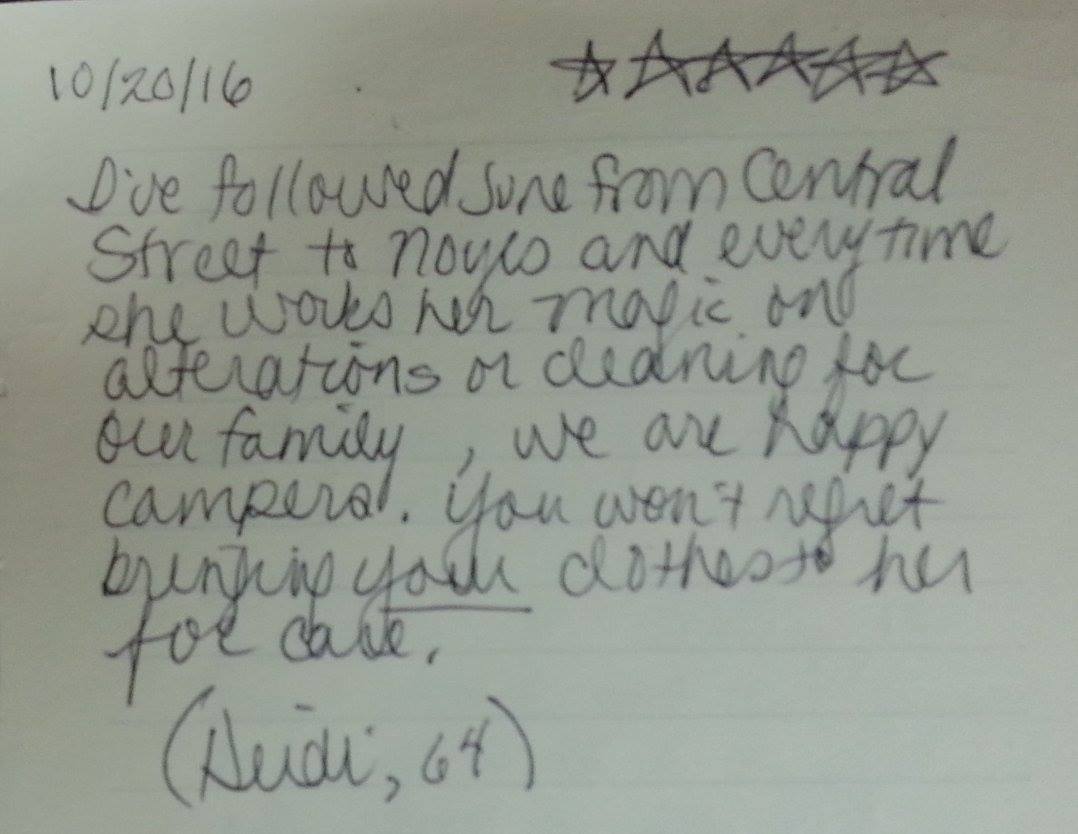 10/20/16
I've followed June from Central
Street to Noyes and everytime
she works her magic on
alterations or cleaning for
our family, we are happy
campers. You won't regret
bringing your clothes to her
for care.
(Heidi, 64)